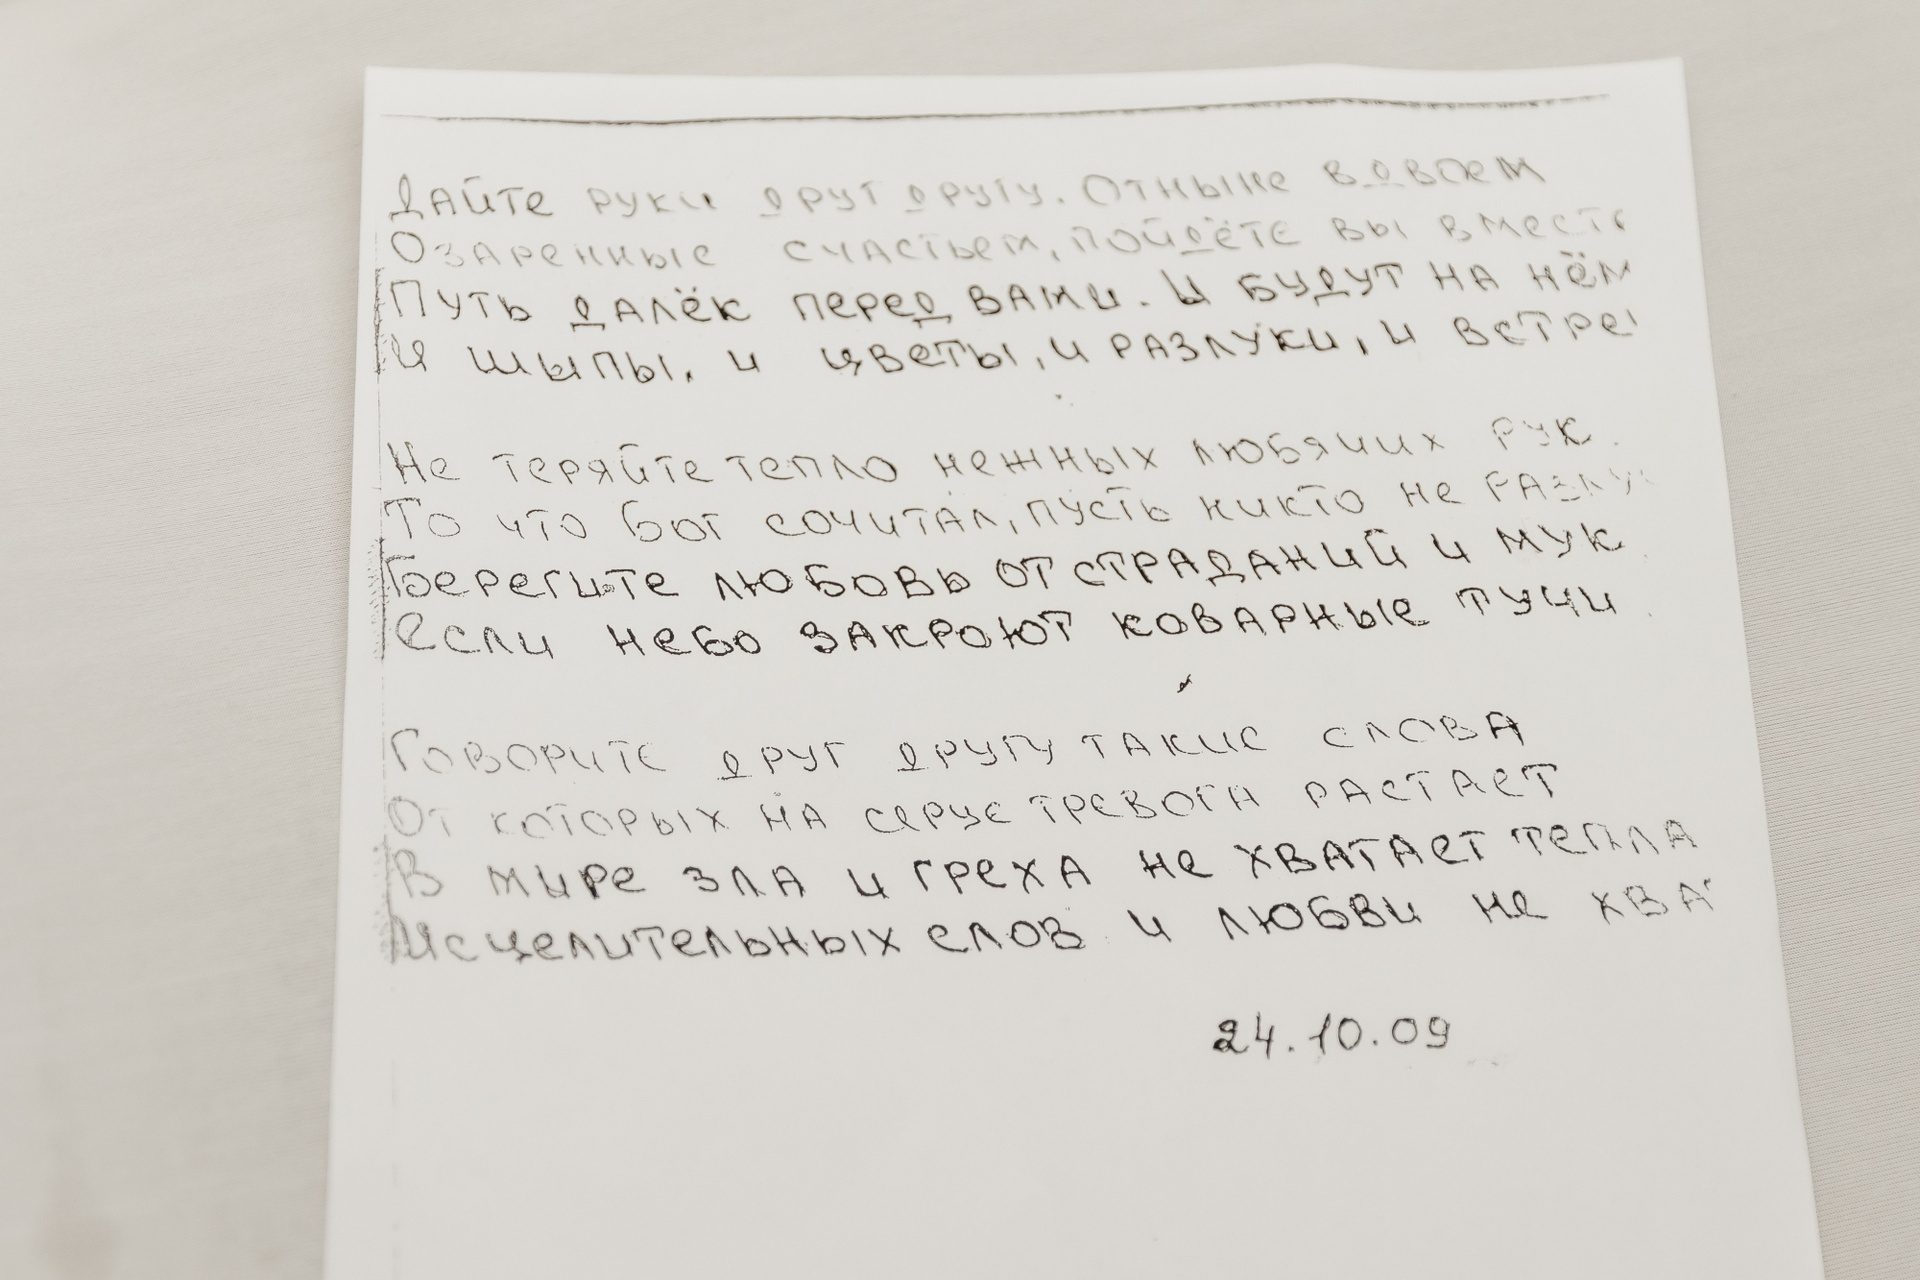 Дайте руки друг другу. Отныне вдвоем
Озаренные счастьем, пойдёте вы вместе
Путь далёк перед вами. И будут на нём
И шыпы, и цветы, и разлуки, и
Не теряйте тепло нежных любячих рук.
То что Бог сочитал, пусть никто не
Берегите любовь от страданий и мук
Если небо закроют коварные тучи
Говорите друг другу такие слова
От которых на серце тревога растает
В мире зла и греха не хватает тепла
Исцелительных слов и любви не
24.10.09